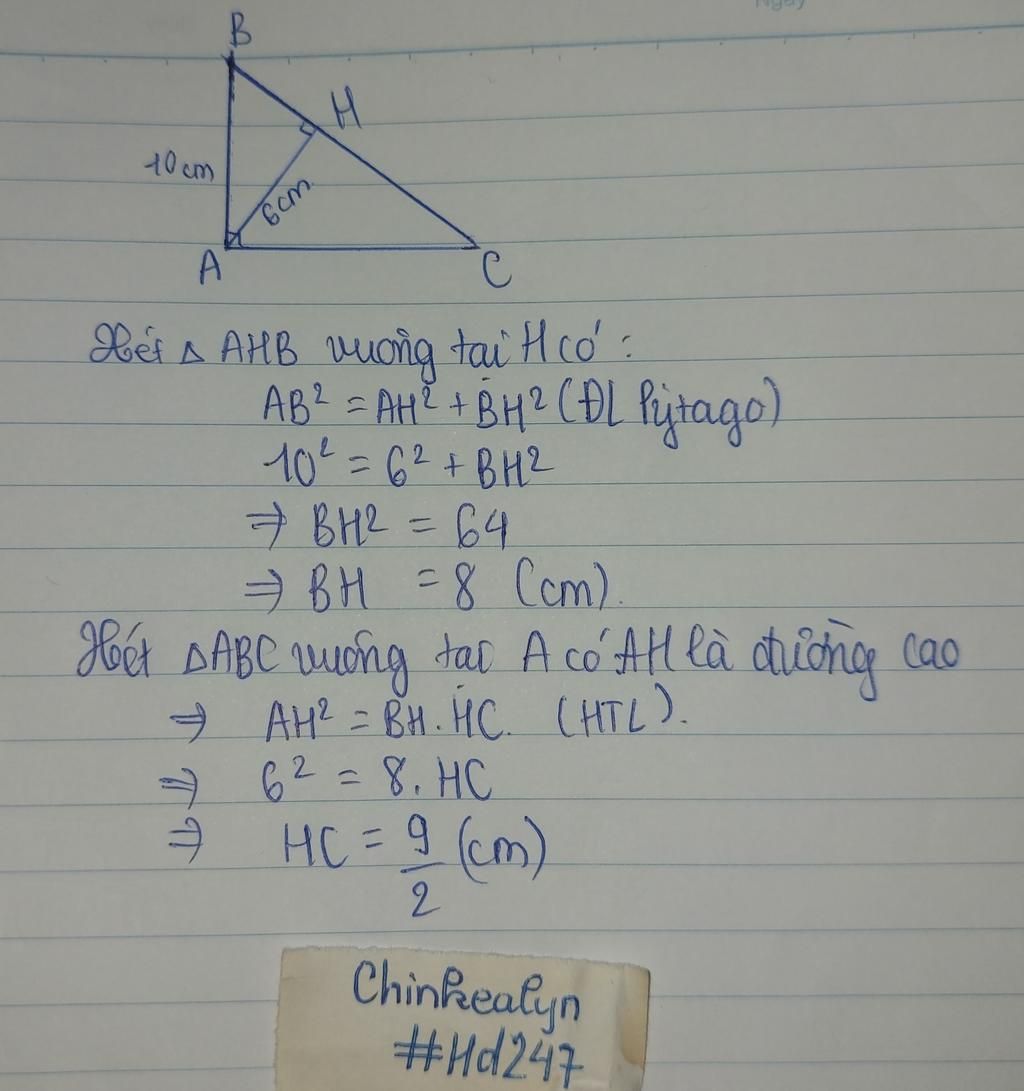 Ngày
B
H
10cm
6cm
A
C
Xét △ AHB vuông tại H có :
AB² = AH² + BH² (ĐL Pýtago)
10² = 6² + BH²
⇒ BH² = 64
⇒ BH = 8 (cm).
Xét △ABC vuông tại A có AH là đường cao
⇒ AH² = BH . HC. (HTL).
⇒ 6² = 8 . HC
⇒ HC = 9/2 (cm)
Chinkealyn
#Hd247